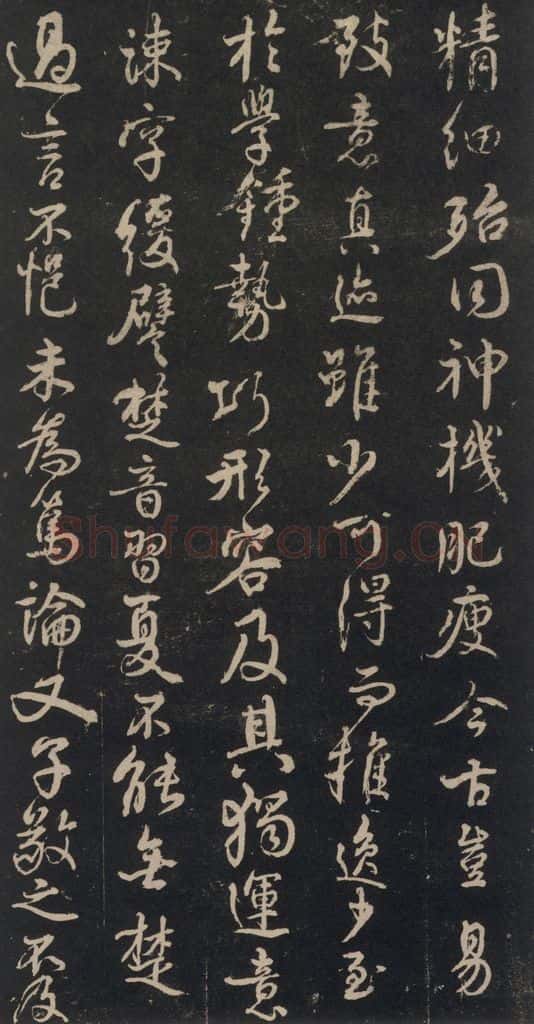 精細殆同神機肥瘦今古豈易
致意真迹雖少可得而推逸少至
於學鍾勢巧形容及其獨運意
疎字緩譬楚音習夏不能無楚
過言不悒未為篤論又子敬之不及
Shufawang.cn